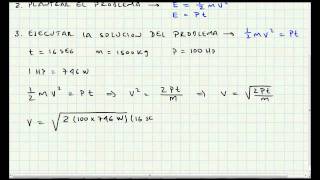 2. PLANTEAR EL PROBLEMA → E = ½ m V²
E = P t
3. EJECUTAR LA SOLUCION DEL PROBLEMA → ½ m V² = P t
t = 16 SEG m = 1500 Kg P = 100 HP
1 HP = 746 W
½ m V² = P t ⇒ V² = 2 P t / m ⇒ V = √(2 P t / m)
V = √ 2 (100 x 746 W) (16 s